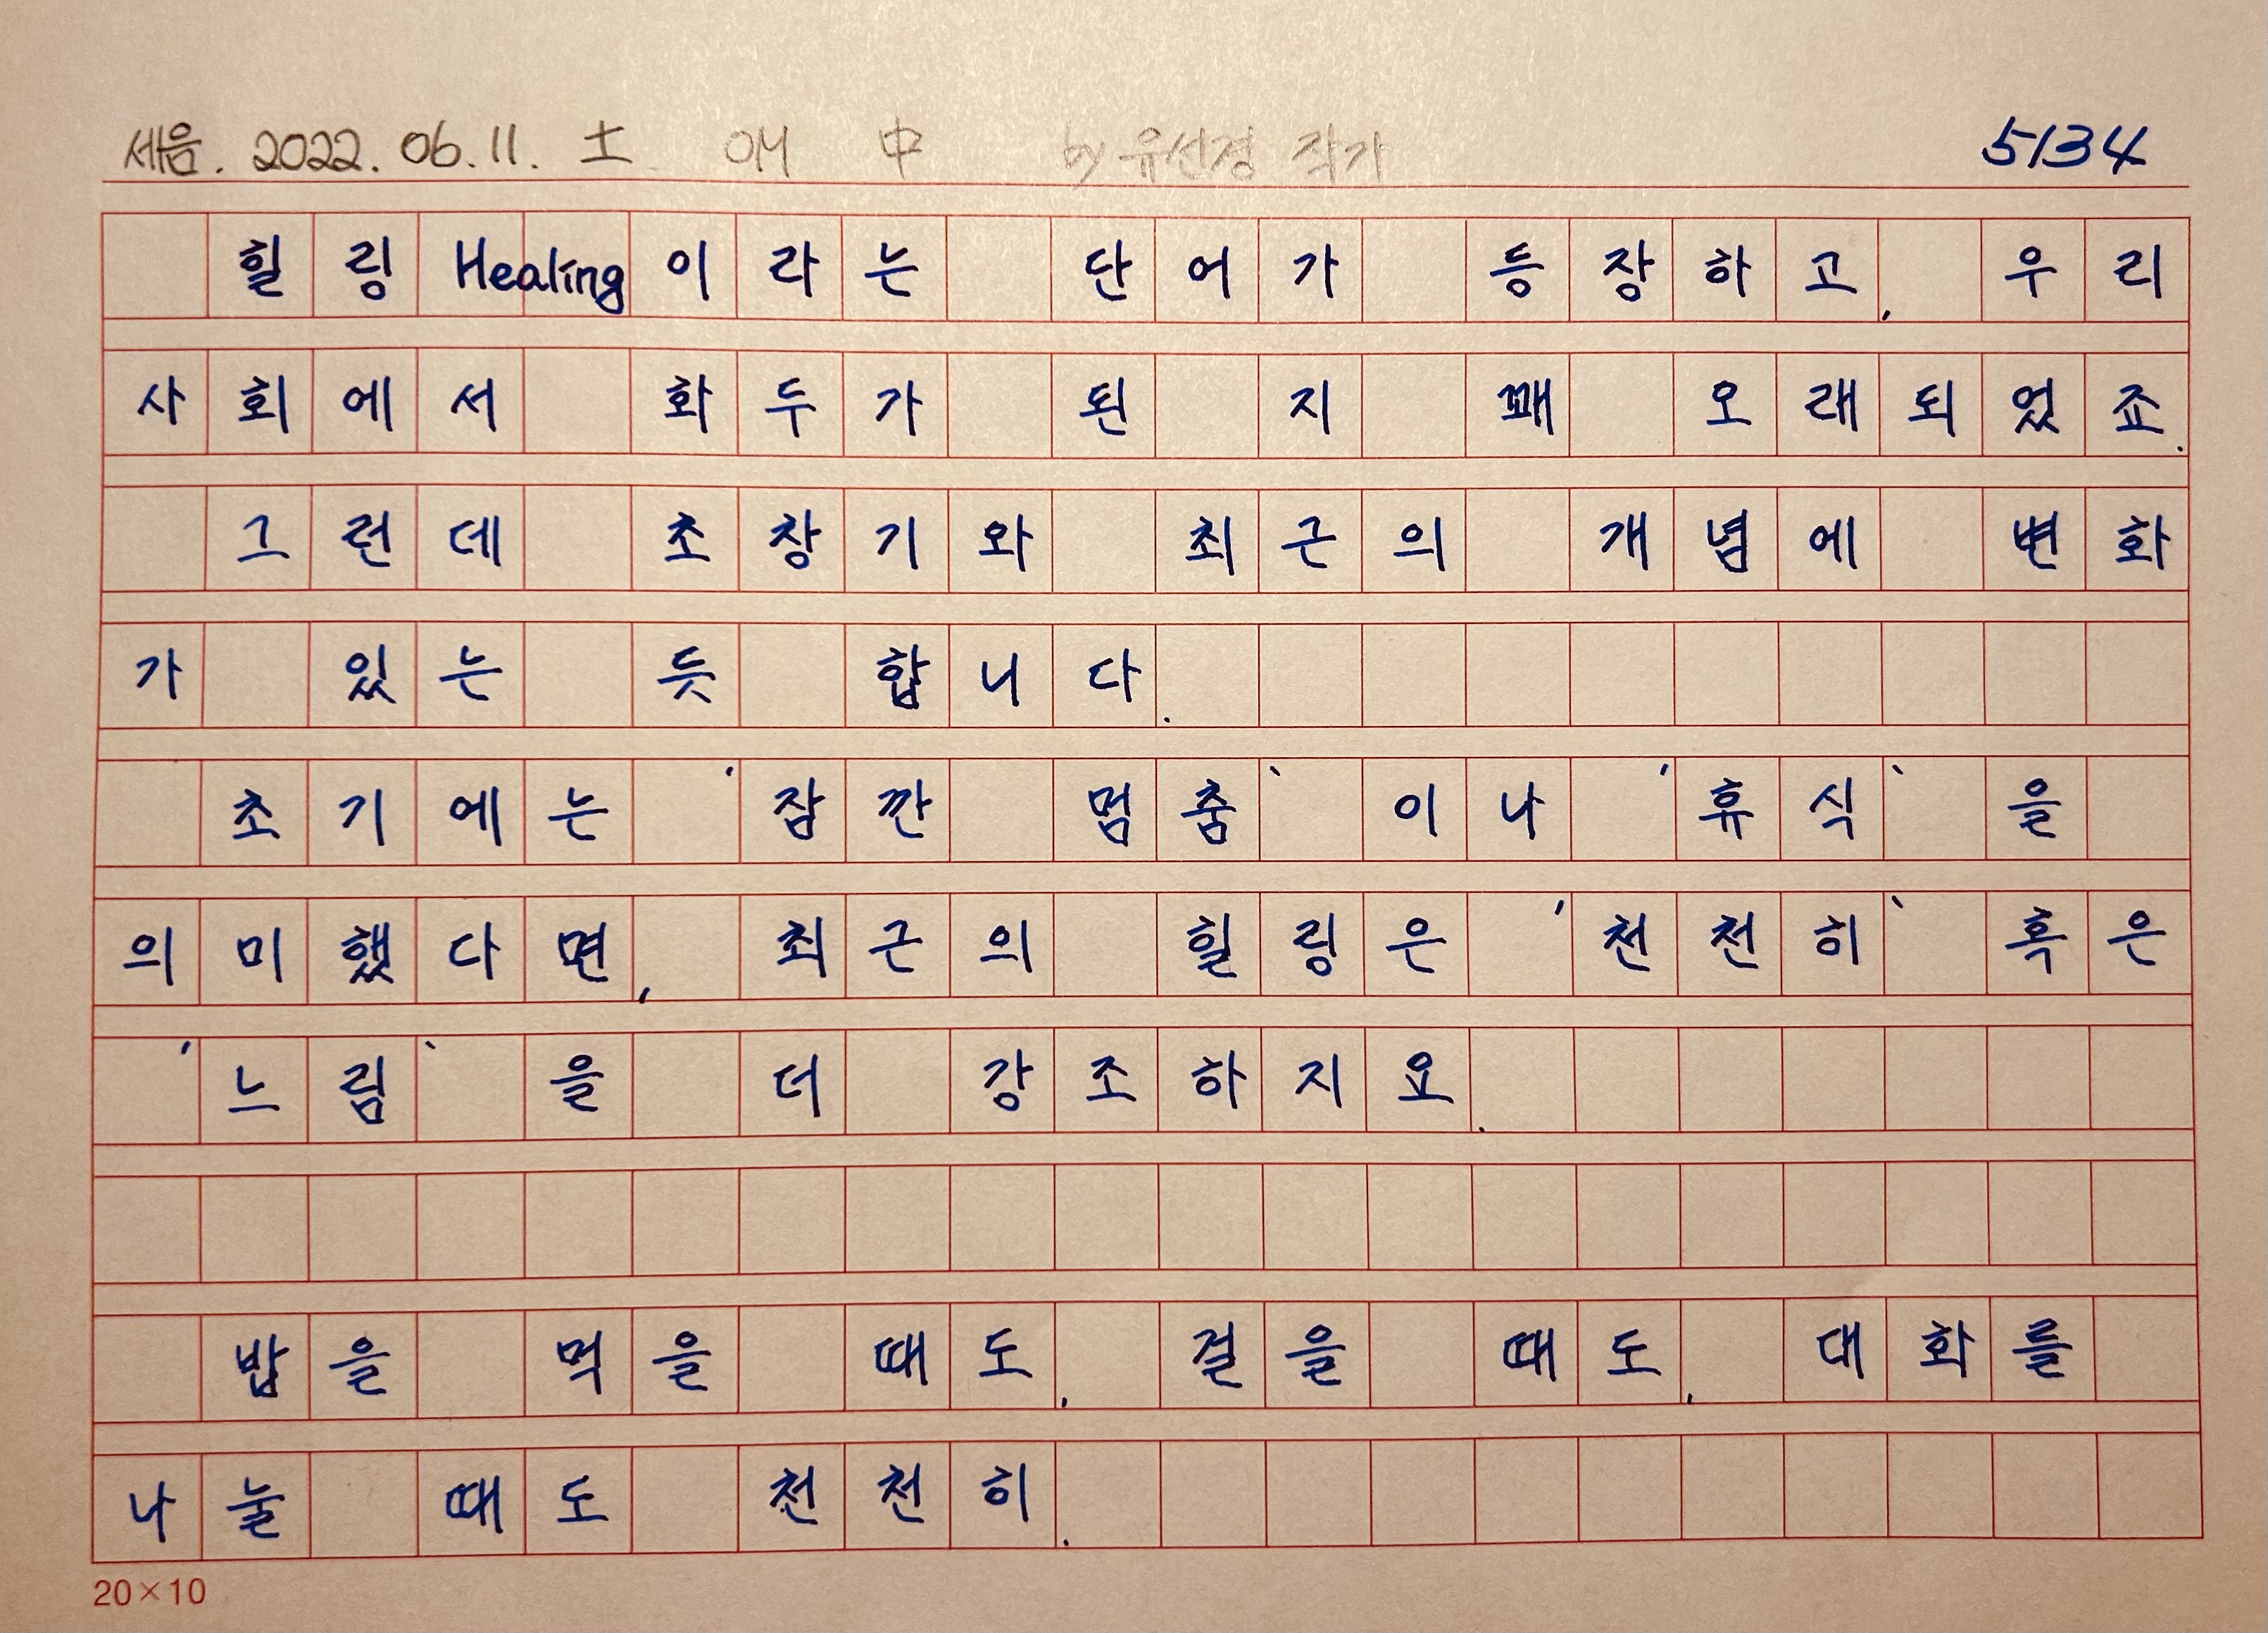 세음. 2022. 06. 11. 土 OM 中 by 유선경 작가 5134
힐링 Healing이라는 단어가 등장하고, 우리
사회에서 화두가 된 지 꽤 오래되었죠.
그런데 초창기와 최근의 개념에 변화
가 있는 듯 합니다.
초기에는 '잠깐 멈춤'이나 '휴식'을
의미했다면, 최근의 힐링은 '천천히' 혹은
'느림'을 더 강조하지요.
밥을 먹을 때도, 걸을 때도, 대화를
나눌 때도 천천히.
20×10